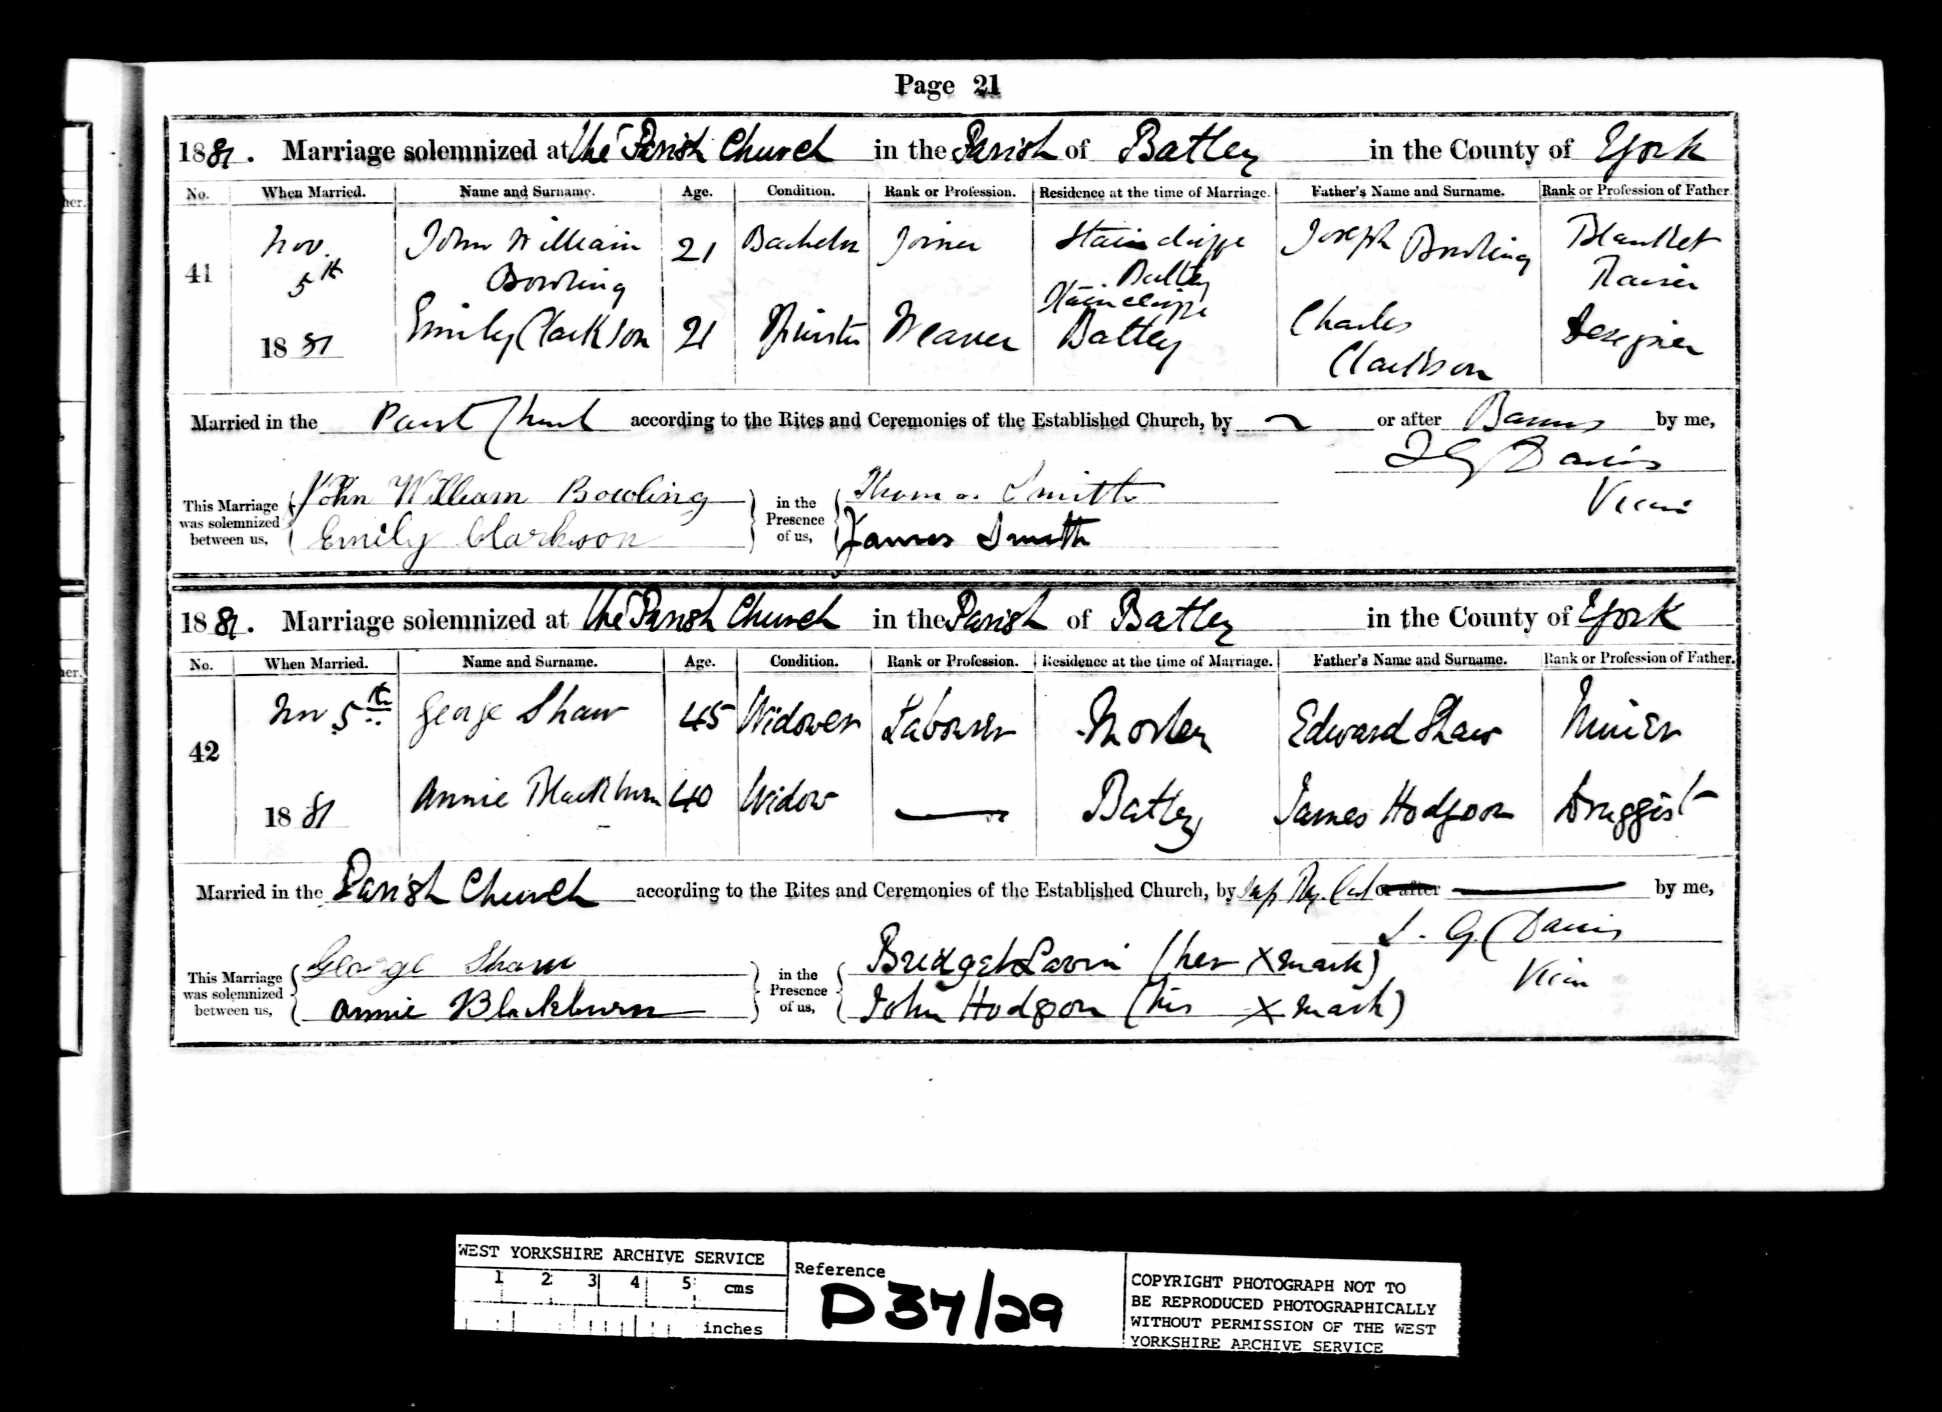 Page 21
1881. Marriage solemnized at the Parish Church in the Parish of Batley in the County of York
No. When Married. Name and Surname. Age. Condition. Rank or Profession. Residence at the time of Marriage. Father's Name and Surname. Rank or Profession of Father.
41 Nov. 5th 1881
John William Bowling 21 Bachelor Joiner Staincliffe Batley Joseph Bowling Blanket Raiser
Emily Clarkson 21 Spinster Weaver Staincliffe Batley Charles Clarkson Designer
Married in the Parish Church according to the Rites and Ceremonies of the Established Church, by or after Banns by me,
Davis
Vicar
This Marriage was solemnized between us, John William Bowling in the Presence of us, Thomas Smith
Emily Clarkson James Smith
1881. Marriage solemnized at the Parish Church in the Parish of Batley in the County of York
No. When Married. Name and Surname. Age. Condition. Rank or Profession. Residence at the time of Marriage. Father's Name and Surname. Rank or Profession of Father.
42 Nov 5th 1881
George Shaw 45 Widower Labourer Morley Edward Shaw Miner
Annie Blackburn 40 Widow Batley James Hodgson Druggist
Married in the Parish Church according to the Rites and Ceremonies of the Established Church, by Sup Reg. Cert or after by me,
G. Davis
Vicar
This Marriage was solemnized between us, George Shaw in the Presence of us, Bridget Lavin (her X mark)
Annie Blackburn John Hodgson (his X mark)
WEST YORKSHIRE ARCHIVE SERVICE
1 2 3 4 5 cms
inches
Reference
D37/29
COPYRIGHT PHOTOGRAPH NOT TO
BE REPRODUCED PHOTOGRAPHICALLY
WITHOUT PERMISSION OF THE WEST
YORKSHIRE ARCHIVE SERVICE